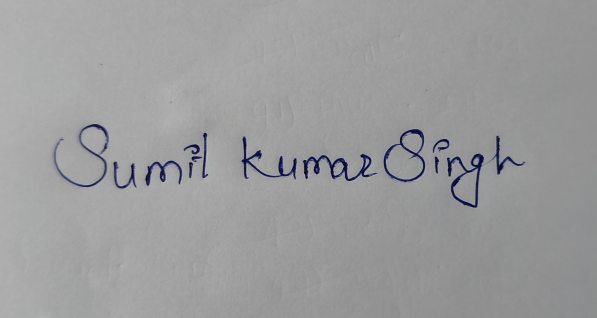 Sumil Kumar Singh